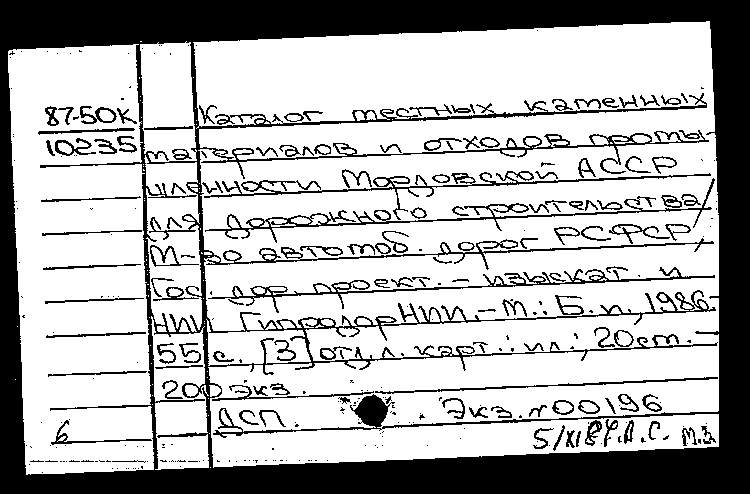 87-50к Каталог местных каменных
10235 материалов и отходов промы-
шленности Мордовской АССР
для дорожного строительства /
М-во автомоб. дорог РСФСР,
Гос. дор. проект. - изыскат. и
НИИ ГипродорНИИ. - М.: Б.и., 1986.-
55 с., [3] отд. л. карт.: ил.; 20 см. -
200 экз.
ДСП. Экз. №00196
6 5/XI 87. Л.С. м.з.